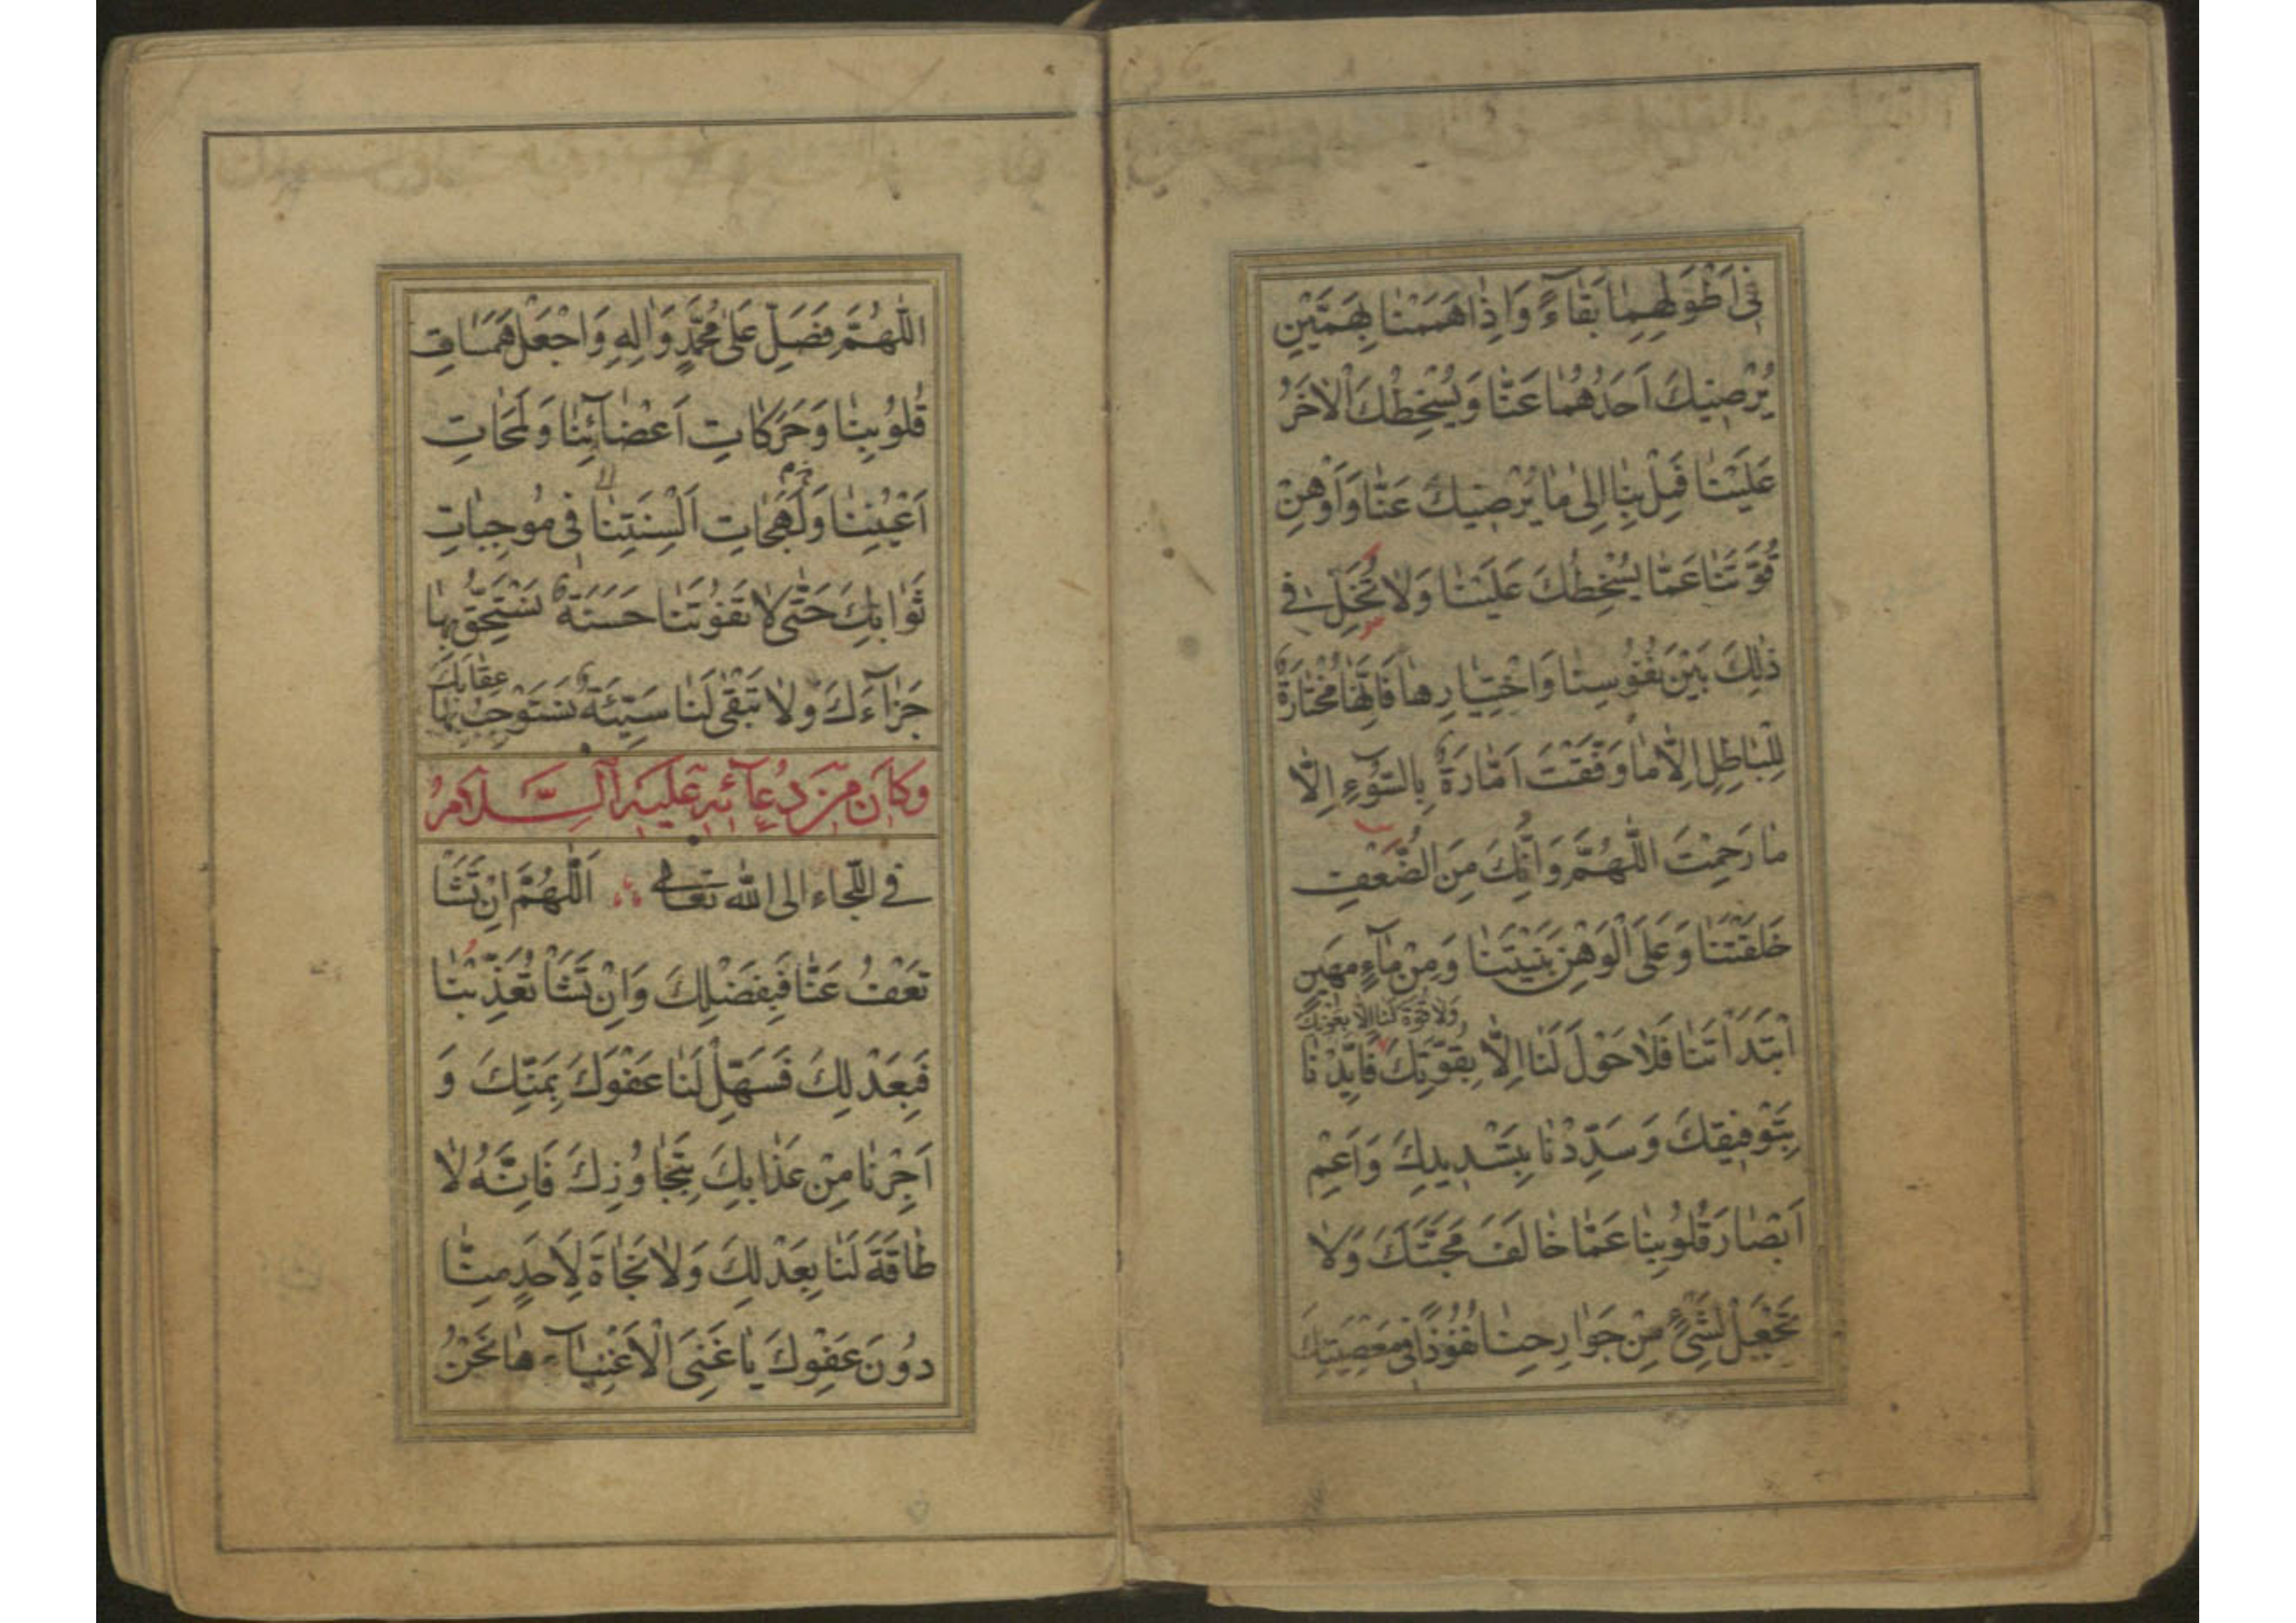 فِى اَطْوَلِهِمٰا بَقٰاءً وَاِذٰا هَمَمْنٰا بِهَمَّيْنِ
يُرْضِيْكَ اَحَدُهُمٰا عَنّٰا وَيُسْخِطُكَ الْاٰخَرُ
عَلَيْنٰا فَمِلْ بِنٰا اِلىٰ مٰا يُرْضِيْكَ عَنّٰا وَاَوْهِنْ
قُوَّتَنٰا عَمّٰا يُسْخِطُكَ عَلَيْنٰا وَلٰا تُخَلِّ فى
ذٰلِكَ بَيْنَ نُفُوسِنٰا وَاخْتِيٰارِهٰا فَاِنَّهٰا مُخْتٰارَةٌ
لِلْبٰاطِلِ اِلّٰا مٰا وَفَّقْتَ اَمّٰارَةٌ بِالسُّوٓءِ اِلّٰا
مٰا رَحِمْتَ اللّٰهُمَّ وَاِنَّكَ مِنَ الضُّعْفِ
خَلَقْتَنٰا وَعَلَى الْوَهْنِ بَنَيْتَنٰا وَمِنْ مٰآءٍ مَهِينٍ
وَلٰا قُوَّةَ لَنٰا اِلّٰا بِعَوْنِكَ
اَبْتَدَاْتَنٰا فَلٰا حَوْلَ لَنٰا اِلّٰا بِقُوَّتِكَ فَاَيِّدْنٰا
بِتَوْفِيقِكَ وَسَدِّدْنٰا بِتَسْدِيدِكَ وَاَعْمِ
اَبْصٰارَ قُلُوبِنٰا عَمّٰا خٰالَفَ مَحَبَّتَكَ وَلٰا
تَجْعَلْ لِشَىْءٍ مِنْ جَوٰارِحِنٰا نُفُوذًا فى مَعْصِيَتِكَ
اللّٰهُمَّ فَصَلِّ عَلىٰ مُحَمَّدٍ وَاٰلِهِ وَاجْعَلْ هَمَسٰاتِ
قُلُوبِنٰا وَحَرَكٰاتِ اَعْضٰائِنٰا وَلَمَحٰاتِ
اَعْيُنِنٰا وَلَهَجٰاتِ اَلْسِنَتِنٰا فى مُوجِبٰاتِ
ثَوٰابِكَ حَتّٰى لٰا تَفُوتَنٰا حَسَنَةٌ نَسْتَحِقُّ بِهٰا
جَزٰآءَكَ وَلٰا تَبْقىٰ لَنٰا سَيِّئَةٌ نَسْتَوْجِبُ بِهٰا عِقٰابَكَ
وَكَانَ مِنْ دُعَآئِهِ عَلَيْهِ السَّلَامُ
فى اللّجاء الى الله تعالى اَللّٰهُمَّ اِنْ تَشَاْ
تَعْفُ عَنّٰا فَبِفَضْلِكَ وَاِنْ تَشَاْ تُعَذِّبْنٰا
فَبِعَدْلِكَ فَسَهِّلْ لَنٰا عَفْوَكَ بِمَنِّكَ وَ
اَجِرْنٰا مِنْ عَذٰابِكَ بِتَجٰاوُزِكَ فَاِنَّهُ لٰا
طٰاقَةَ لَنٰا بِعَدْلِكَ وَلٰا نَجٰاةَ لِاَحَدٍ مِنّٰا
دُونَ عَفْوِكَ يٰا غَنِىَّ الْاَغْنِيٰآءِ هٰا نَحْنُ